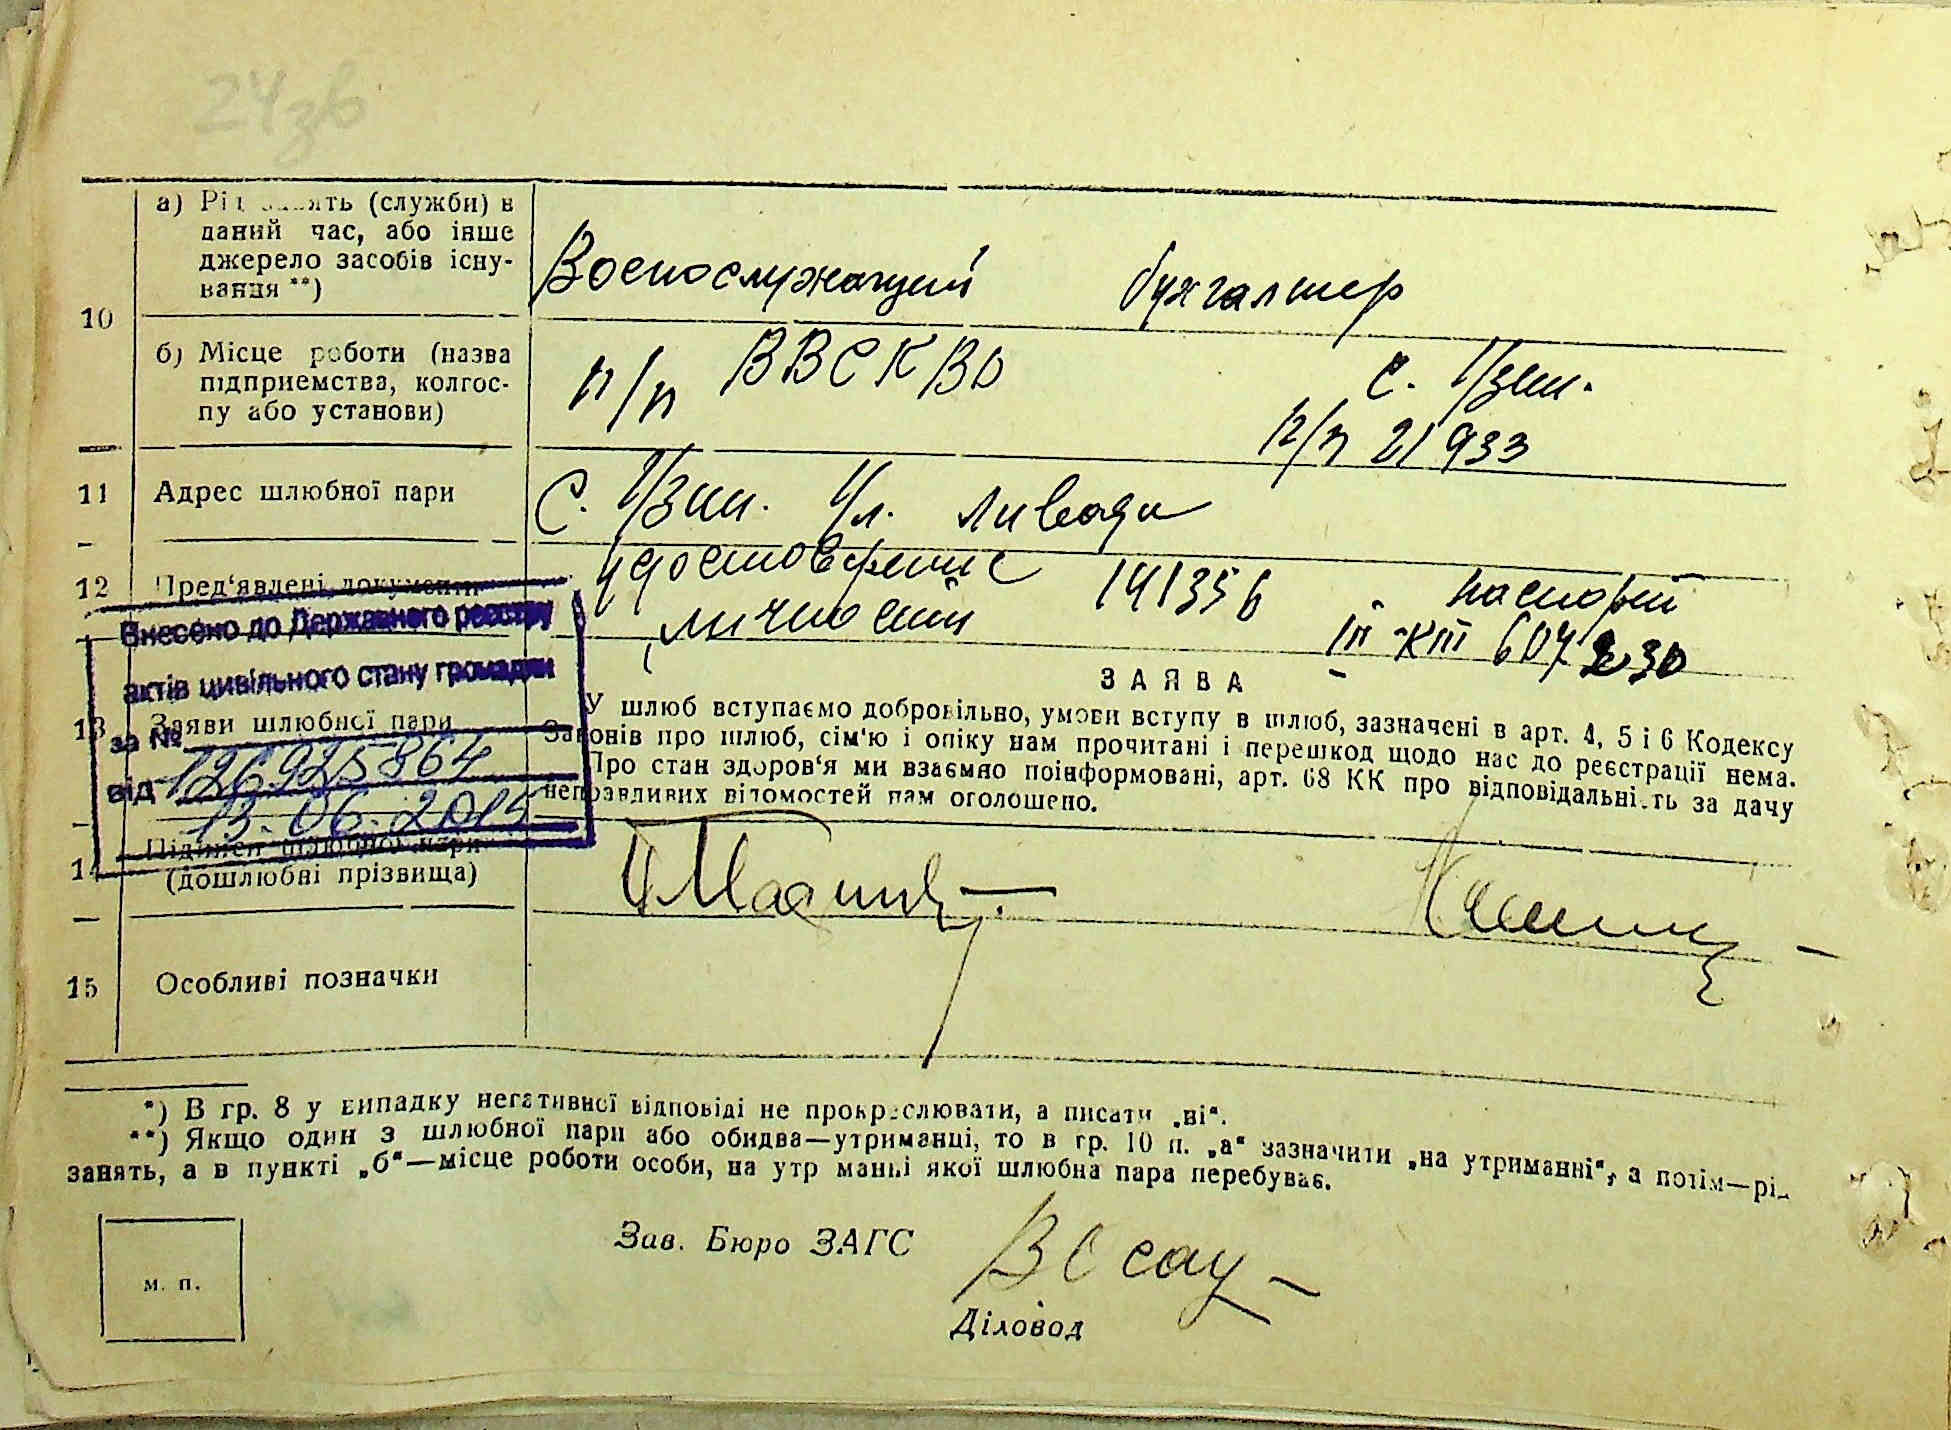 24зв
а) Рід занять (служби) в
даний час, або інше
джерело засобів існу-
вання **)
Военослужащий бухгалтер
10
б) Місце роботи (назва
підприємства, колгос-
пу або установи)
п/п ВВСКВО с. Узин.
п/п 21933
11 Адрес шлюбної пари
С. Узин. Ул. Ливади
12 Пред‘явлені документи
удостоверение 141356 паспорт
личности III-КТ 607230
Внесено до Державного реєстру
актів цивільного стану громадян
за № 126925864
від 13.06.2015
13 Заяви шлюбної пари
ЗАЯВА
У шлюб вступаємо добровільно, умови вступу в шлюб, зазначені в арт. 4, 5 і 6 Кодексу
Законів про шлюб, сім‘ю і опіку нам прочитані і перешкод щодо нас до реєстрації нема.
Про стан здоров‘я ми взаємно поінформовані, арт. 68 КК про відповідальність за дачу
неправдивих відомостей нам оголошено.
14 Підписи шлюбної пари
(дошлюбні прізвища)
15 Особливі позначки
*) В гр. 8 у випадку негативної відповіді не прокреслювати, а писати „ні“.
**) Якщо один з шлюбної пари або обидва—утриманці, то в гр. 10 п. „а“ зазначити „на утриманні“, а потім—рід
занять, а в пункті „б“—місце роботи особи, на утриманні якої шлюбна пара перебуває.
Зав. Бюро ЗАГС
м. п.
Діловод